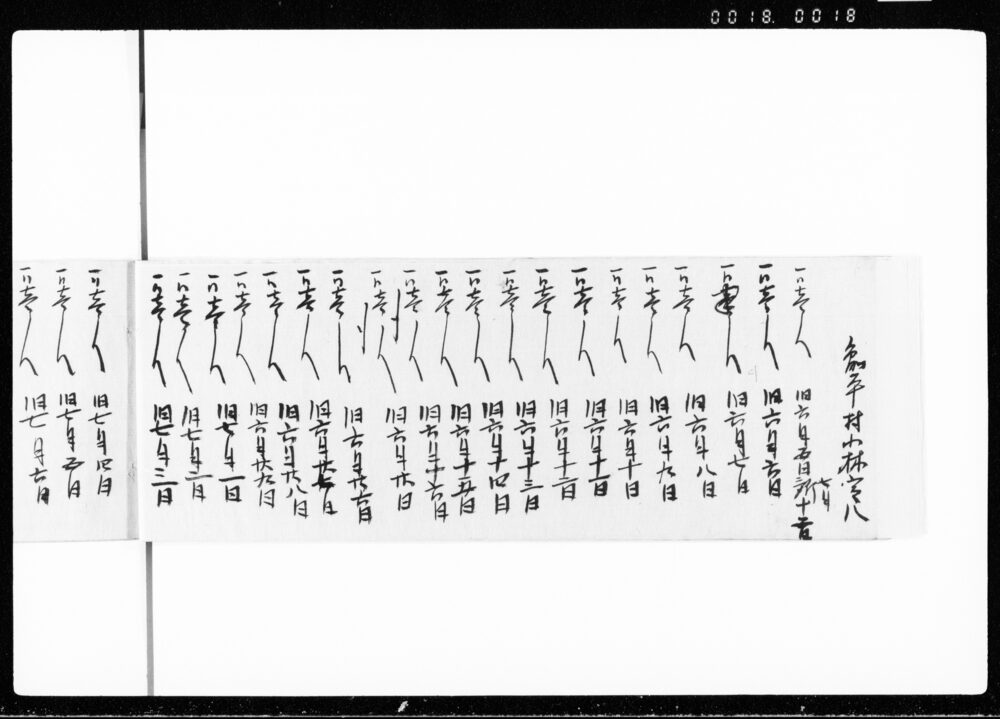 0018. 0018
村小林宮八
一 壱人 旧六月五日 新七月十二日
一 壱人 旧六月六日
一 人 旧六月七日
一 壱人 旧六月八日
一 壱人 旧六月九日
一 壱人 旧六月十日
一 壱人 旧六月十一日
一 壱人 旧六月十二日
一 壱人 旧六月十三日
一 壱人 旧六月十四日
一 壱人 旧六月十五日
一 壱人 旧六月十六日
一 壱人 旧六月廿日
一 壱人 旧六月廿六日
一 壱人 旧六月廿七日
一 壱人 旧六月廿八日
一 壱人 旧六月廿九日
一 壱人 旧七月一日
一 壱人 旧七月二日
一 壱人 旧七月三日
一 壱人 旧七月四日
一 壱人 旧七月五日
一 壱人 旧七月六日